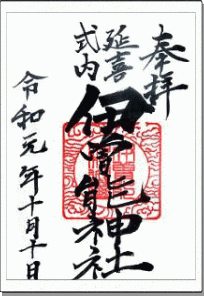 奉拝
延喜
式内
伊能神社
令和元年十月十日